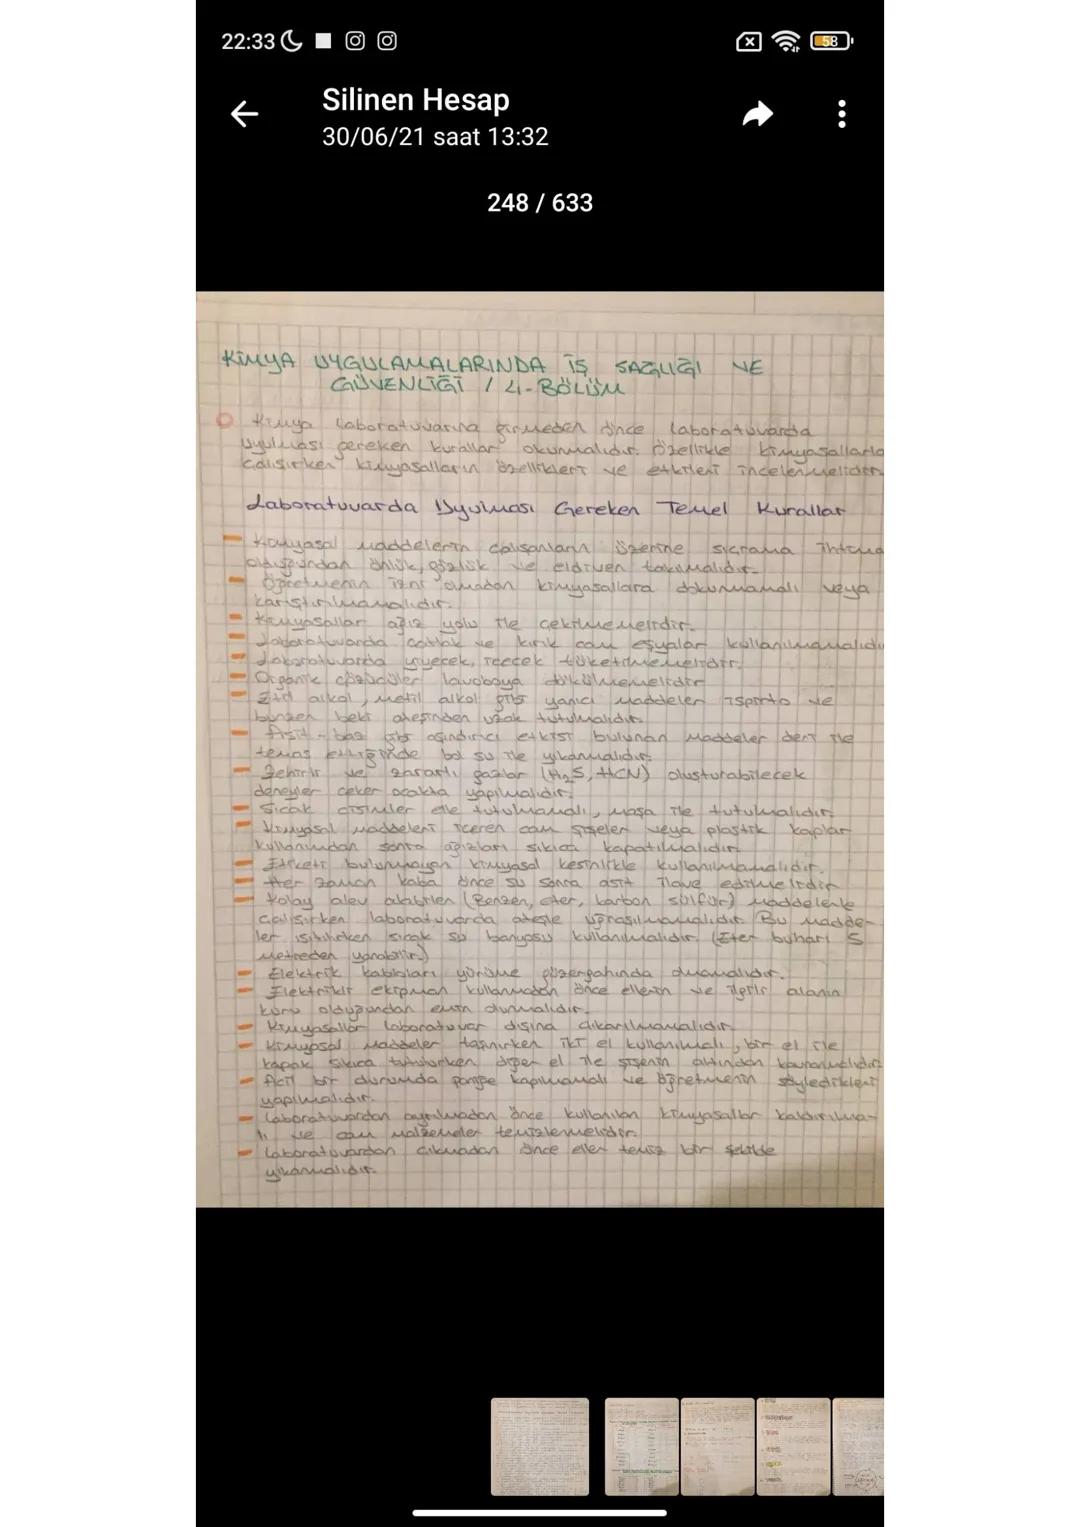 22:33
58
Silinen Hesap
30/06/21 saat 13:32
248 / 633
KİMYA UYGULAMALARINDA İŞ SAĞLIĞI VE
GÜVENLİĞİ / 4. BÖLÜM
Kimya laboratuvarına girmeden önce laboratuvarda
uyulması gereken kurallar okunmalıdır. Özellikle kimyasallarla
çalışırken kimyasalların özellikleri ve etkileri incelenmelidir.
Laboratuvarda Uyulması Gereken Temel Kurallar
Kimyasal maddelerin çalışanların üzerine sıçrama
olduğundan önlük, gözlük ve eldiven takılmalıdır.
Öğretmenin izni olmadan kimyasallara dokunmamalı veya
karıştırılmamalıdır.
Kimyasallar ağız yolu ile çekilmemelidir.
Laboratuvarda çatlak ve kırık cam eşyalar kullanılmamalıdı
Laboratuvarda yiyecek, içecek tüketilmemelidir.
Organik çözücüler lavoboya dökülmemelidir
Etil alkol, metil alkol gibi yanıcı maddeler ispirto ve
bunzen beki ateşinden uzak tutulmalıdır.
Asit - baz gibi aşındırıcı etkisi bulunan maddeler deri ile
temas ettiğinde bol su ile yıkanmalıdır.
Zehirli ve zararlı gazlar (H₂S, HCN) oluşturabilecek
deneyler çeker ocakta yapılmalıdır.
Sıcak cisimler elle tutulmamalı, maşa ile tutulmalıdır.
Kimyasal maddeleri içeren cam şişeler veya plastik kaplar
kullanımdan sonra ağızları sıkıca kapatılmalıdır.
Etiketi bulunmayan kimyasal kesinlikle kullanılmamalıdır.
Her zaman kaba önce su sonra asit ilave edilmelidir
Kolay alev alabilen (Benzen, eter, karbon sülfür) maddelerle
çalışırken laboratuvarda ateşle uğraşılmamalıdır. Bu madde-
ler ısıtılırken sıcak su banyosu kullanılmalıdır. (Eter buharı 5
metreden yanabilir.)
Elektrik kabloları yürüme güzergahında olmamalıdır.
Elektrikli ekipman kullanmadan önce ellerin ve ilgili alanın
kuru olduğundan emin olunmalıdır.
Kimyasallar laboratuvar dışına çıkarılmamalıdır.
Kimyasal maddeler taşınırken iki el kullanılmalı, bir el ile
kapak sıkıca tutulurken diğer el ile şişenin altından kavranmalıdır
Acil bir durumda paniğe kapılmamalı ve öğretmenin söyledikleri
yapılmalıdır.
Laboratuvardan ayrılmadan önce kullanılan kimyasallar kaldırılma-
lı ve cam malzemeler temizlenmelidir.
Laboratuvardan çıkmadan önce eller temiz bir şekilde
yıkanmalıdır.